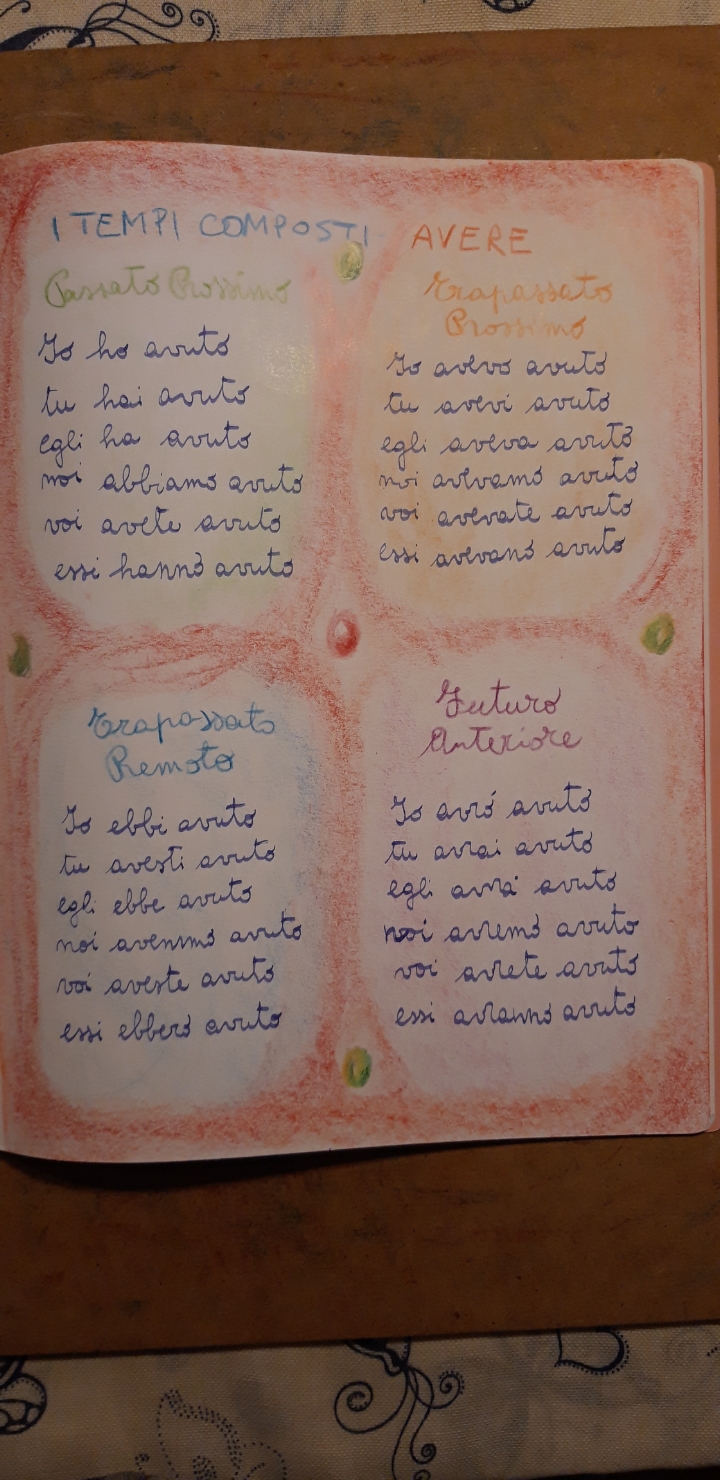 I TEMPI COMPOSTI AVERE
Passato Prossimo
Io ho avuto
tu hai avuto
egli ha avuto
noi abbiamo avuto
voi avete avuto
essi hanno avuto
Trapassato
Prossimo
Io avevo avuto
tu avevi avuto
egli aveva avuto
noi avevamo avuto
voi avevate avuto
essi avevano avuto
Trapassato
Remoto
Io ebbi avuto
tu avesti avuto
egli ebbe avuto
noi avemmo avuto
voi aveste avuto
essi ebbero avuto
Futuro
Anteriore
Io avró avuto
tu avrai avuto
egli avrá avuto
noi avremo avuto
voi avrete avuto
essi avranno avuto